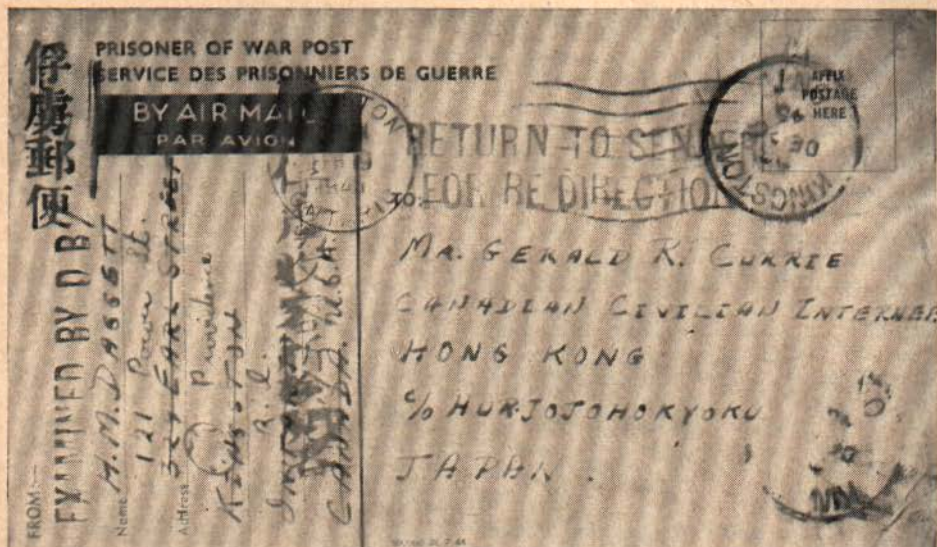 俘虜郵便
PRISONER OF WAR POST
SERVICE DES PRISONNIERS DE GUERRE
BY AIR MAIL
PAR AVION
AFFIX
POSTAGE
HERE
KINGSTON
RETURN TO SENDER
FOR RE DIRECTION
TO:—
MR. GERALD R. CURRIE
CANADIAN CIVILIAN INTERNEE
HONG KONG
C/O HURJOJOHOKYOKU
JAPAN.
FROM:—
EXAMINED BY D B/
Name H. M. DASSETT
121 Power St.
Address 329 EARL STREET
Providence
KINGSTON
R.I.
CANADA. U.S.A.